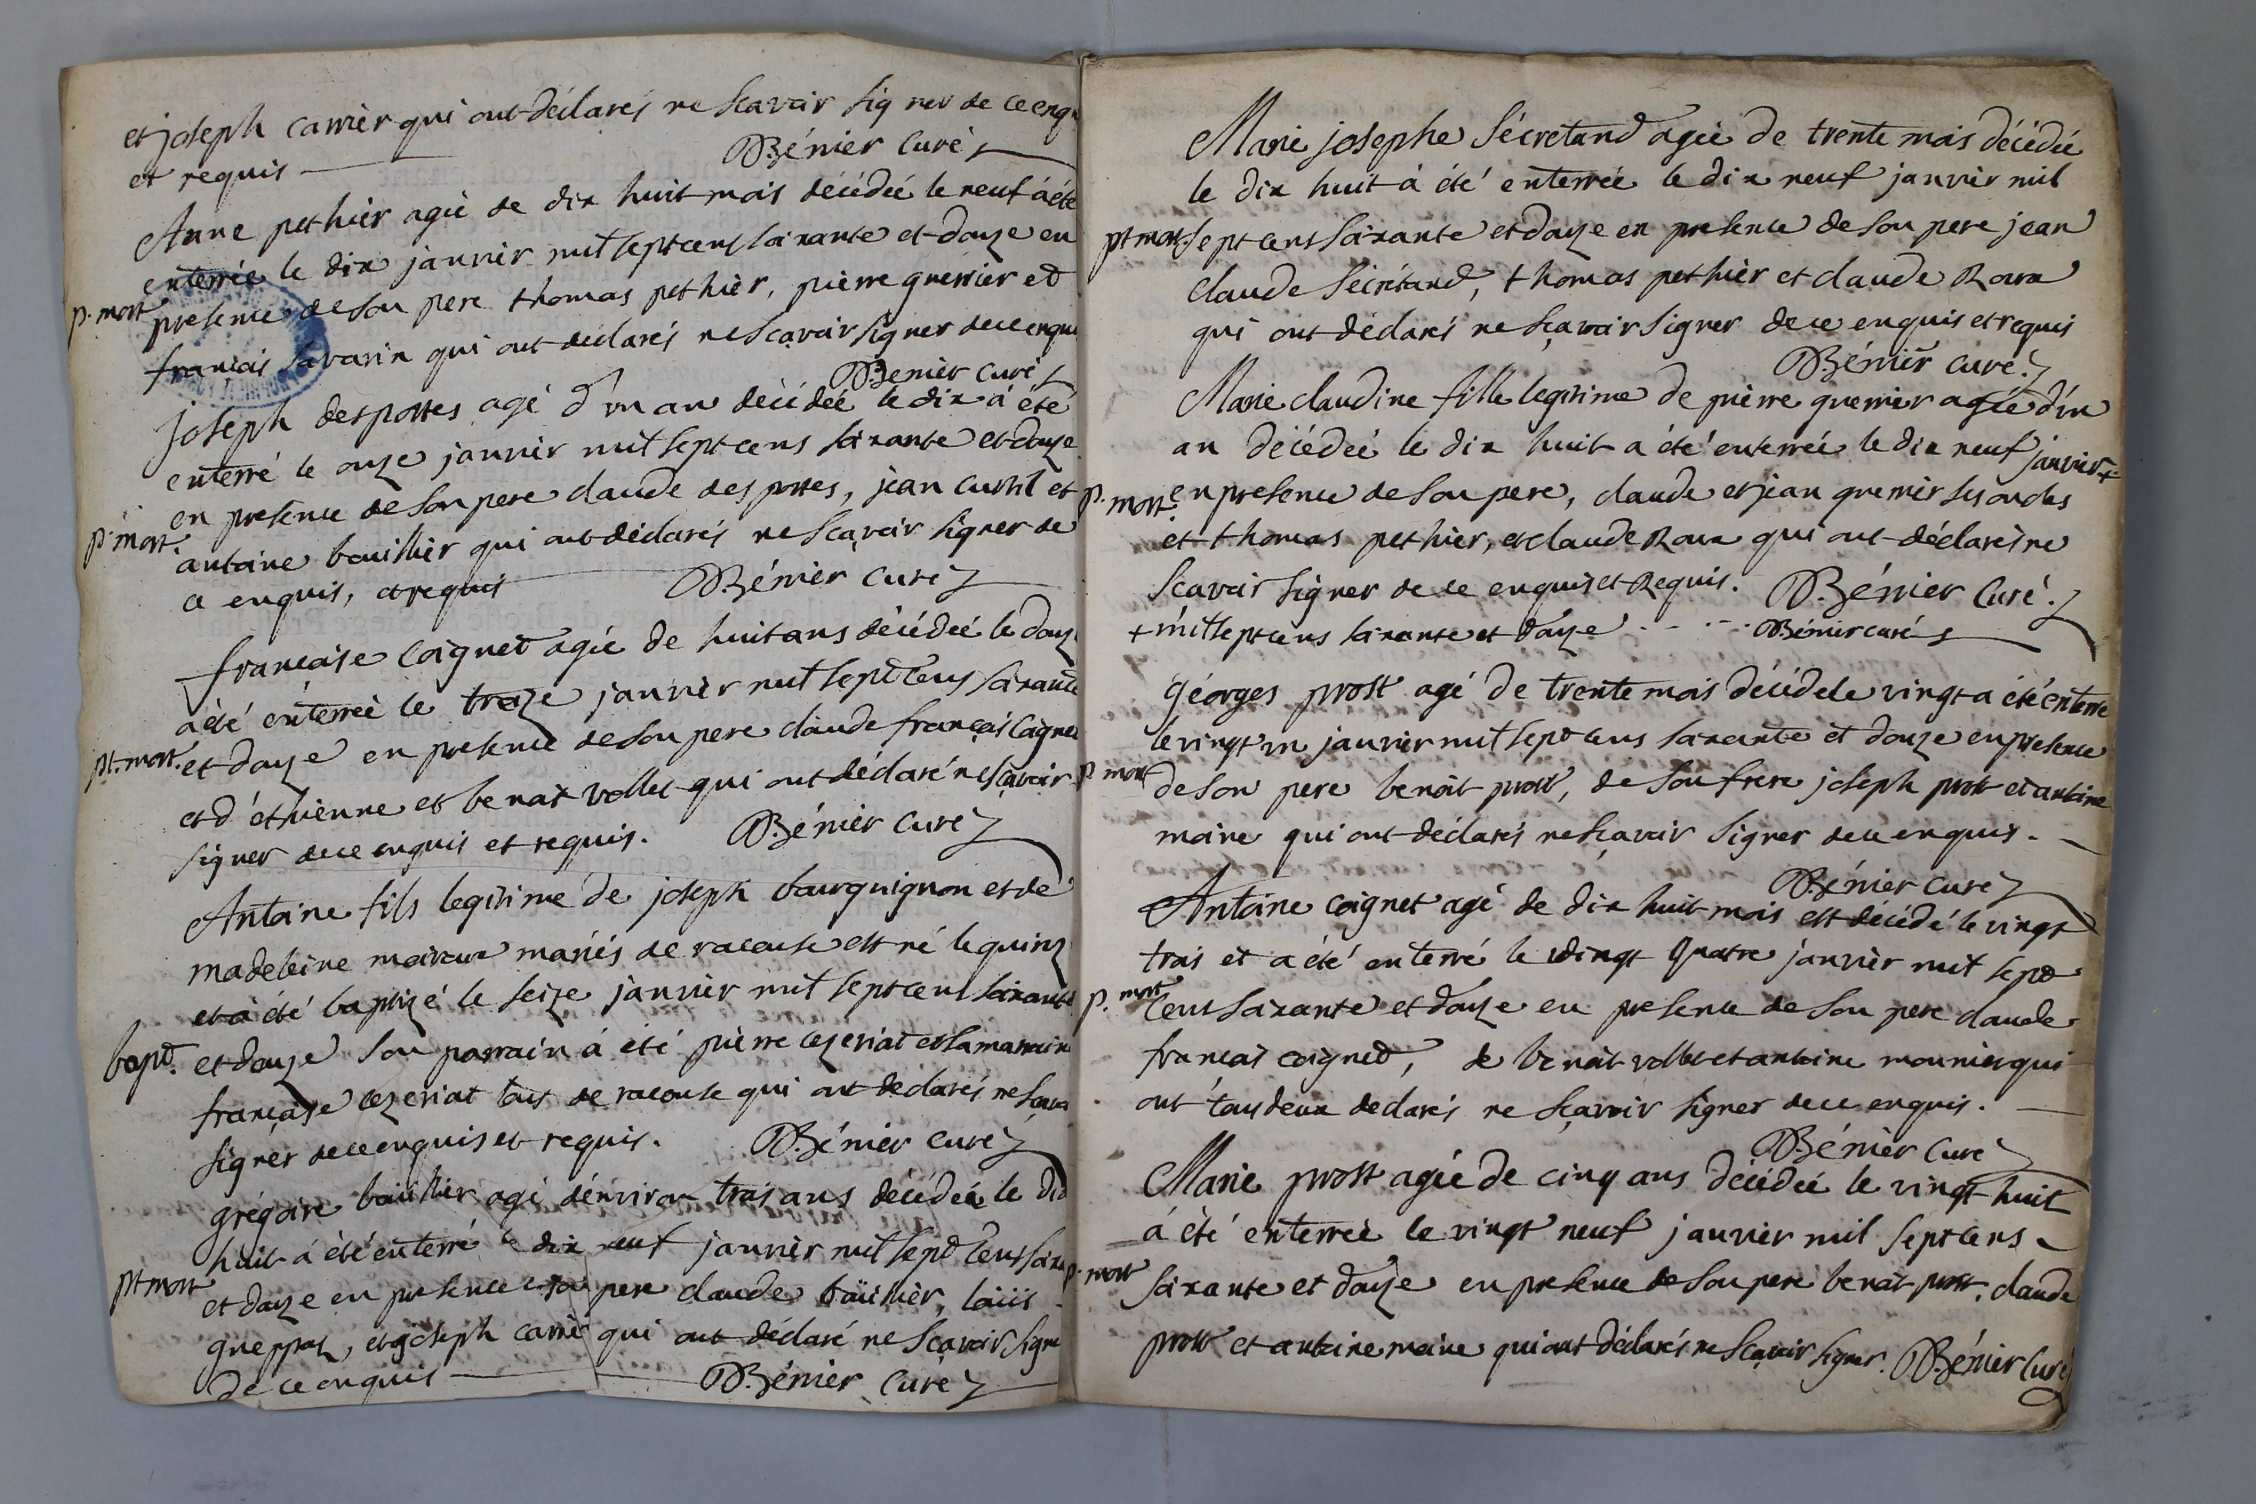 et joseph carrier qui ont déclarés ne scavoir signer de ce enq
et requis
Bénier Curé
Anne pethier agée de dix huit mois décédée le neuf à été
enterrée le dix janvier mil sept cens soixante et douze en
p. mort
presence de son pere thomas pethier, pierre guerrier et
françois savarin qui ont déclarés ne scavoir signer de ce enqui
Bénier curé
joseph desportes agé d'un an décédée le dix à été
enterré le onze janvier mil sept cens soixante et douze
en presence de son pere claude desportes, jean curtil et
p. mort.
antoine bouillier qui ont déclarés ne scavoir signer de
ce enquis, et requis
Bénier curé
françoise Coignet agée de huit ans décédée le douz
à été enterrée le treize janvier mil sept cens soixante
pt. mort.
et douze en presence de son pere claude françois Coignet
et d'ethienne et benoit vollet qui ont déclaré ne scavoir
signer de ce enquis et requis.
Bénier curé
Antoine fils legitime de joseph bourguignon et de
madeleine moiroux mariés de racouse est né le quinz
et à été baptizé le seize janvier mil sept cens soixante
bapt.
et douze son parrain à été pierre cezeriat et la marraine
françoise cezeriat tous de racouse qui ont declarés ne scavoi
signer de ce enquis et requis.
Bénier curé
grégoire bouillier agé d'environ trois ans décédée le dix
huit à été enterré le dix neuf janvier mil sept cens soixa
pt mort
et douze en presence de son pere claude boüillier, loüis
gueppat, et joseph carrie qui ont déclaré ne scavoir signe
de ce enquis
Bénier Curé
Marie josephe sécretand agée de trente mois décédée
le dix huit à été enterrée le dix neuf janvier mil
pt mort.
sept cens soixante et douze en presence de son pere jean
claude sécrétand, thomas pethier et claude Roux
qui ont déclarés ne sçavoir signer de ce enquis et requis
Bénier curé.
Marie claudine fille legitime de pierre guerrier agée d'un
an décédée le dix huit a été enterrée le dix neuf janvier +
p. mort.
en presence de son pere, claude et jean guerrier ses oncles
et thomas pethier, et claude Roux qui ont déclarés ne
scavoir signer de ce enquis et Requis.
Bénier Curé.
+ mil sept cens soixante et douze
Bénier curé
Géorges prost agé de trente mois décédé le vingt a été enterré
le vingt un janvier mil sept cens soixante et douze en presence
p. mort
de son pere benoit prost, de son frere joseph prost et antoine
moine qui ont déclarés ne sçavoir signer de ce enquis.
Bénier curé
Antoine coignet agé de dix huit mois est décédé le vingt
trois et a été enterré le vingt quatre janvier mil sept
p. mort
cens soixante et douze en presence de son pere claude
françois coignet, de benoit vollet et antoine mounier qui
ont tous deux declarés ne sçavoir signer de ce enquis.
Bénier Curé
Marie prost agée de cinq ans décédée le vingt huit
à été enterrée le vingt neuf janvier mil sept cens
p. mort
soixante et douze en presence de son pere benoit prost, claude
prost et antoine moine qui ont déclarés ne sçavoir signer. Bénier Curé